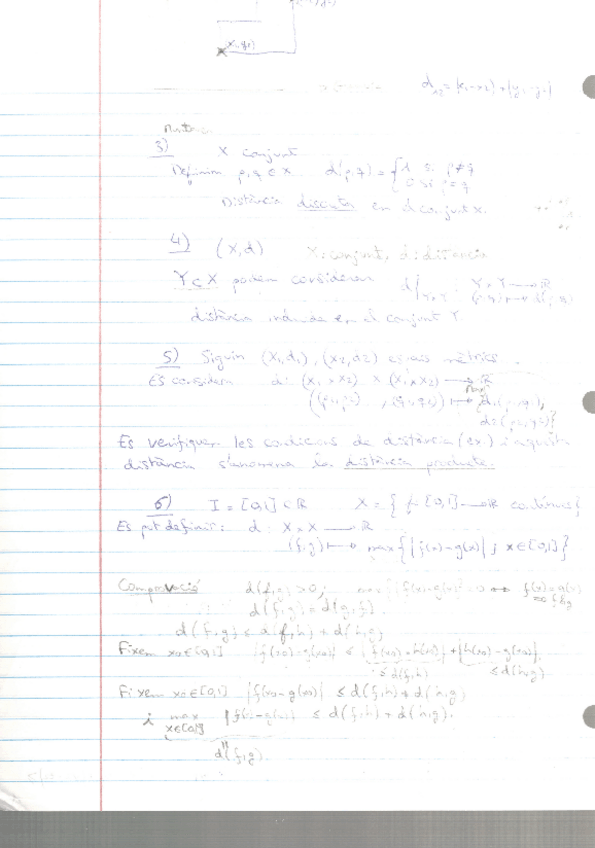 (x1,y1)
d = |x1-x2| + |y1-y2|
3) X conjunt
Definim p,q ∈ X d(p,q) = { 1 si p≠q
0 si p=q
Distància discreta en el conjunt X.
4) (X,d) X: conjunt, d: distància
Y ⊂ X podem considerar d|Y×Y : Y×Y → R
distància induïda en el conjunt Y.
5) Siguin (X1,d1), (X2,d2) espais mètrics.
Es considera d: (X1×X2) × (X1×X2) → R
((p1,p2), (q1,q2)) ↦ max{d1(p1,q1),
Es verifiquen les condicions de distància (ex.) i aquesta
distància s'anomena la distància producte.
6) I = [0,1] ⊂ R X = { f: [0,1] → R contínues}
Es pot definir: d: X×X → R
(f,g) ↦ max{|f(x)-g(x)| ; x∈[0,1]}
Comprovació d(f,g) ≥ 0; max |f(x)-g(x)| = 0 ⟺ f(x)=g(x)
d(f,g) = d(g,f).
d(f,g) ≤ d(f,h) + d(h,g)
Fixem x0∈[0,1] |f(x0)-g(x0)| ≤ |f(x0)-h(x0)| + |h(x0)-g(x0)|
≤ d(f,h) ≤ d(h,g)
Fixem x0∈[0,1] |f(x0)-g(x0)| ≤ d(f,h) + d(h,g)
i max |f(x)-g(x)| ≤ d(f,h) + d(h,g).
x∈[0,1]
d(f,g).